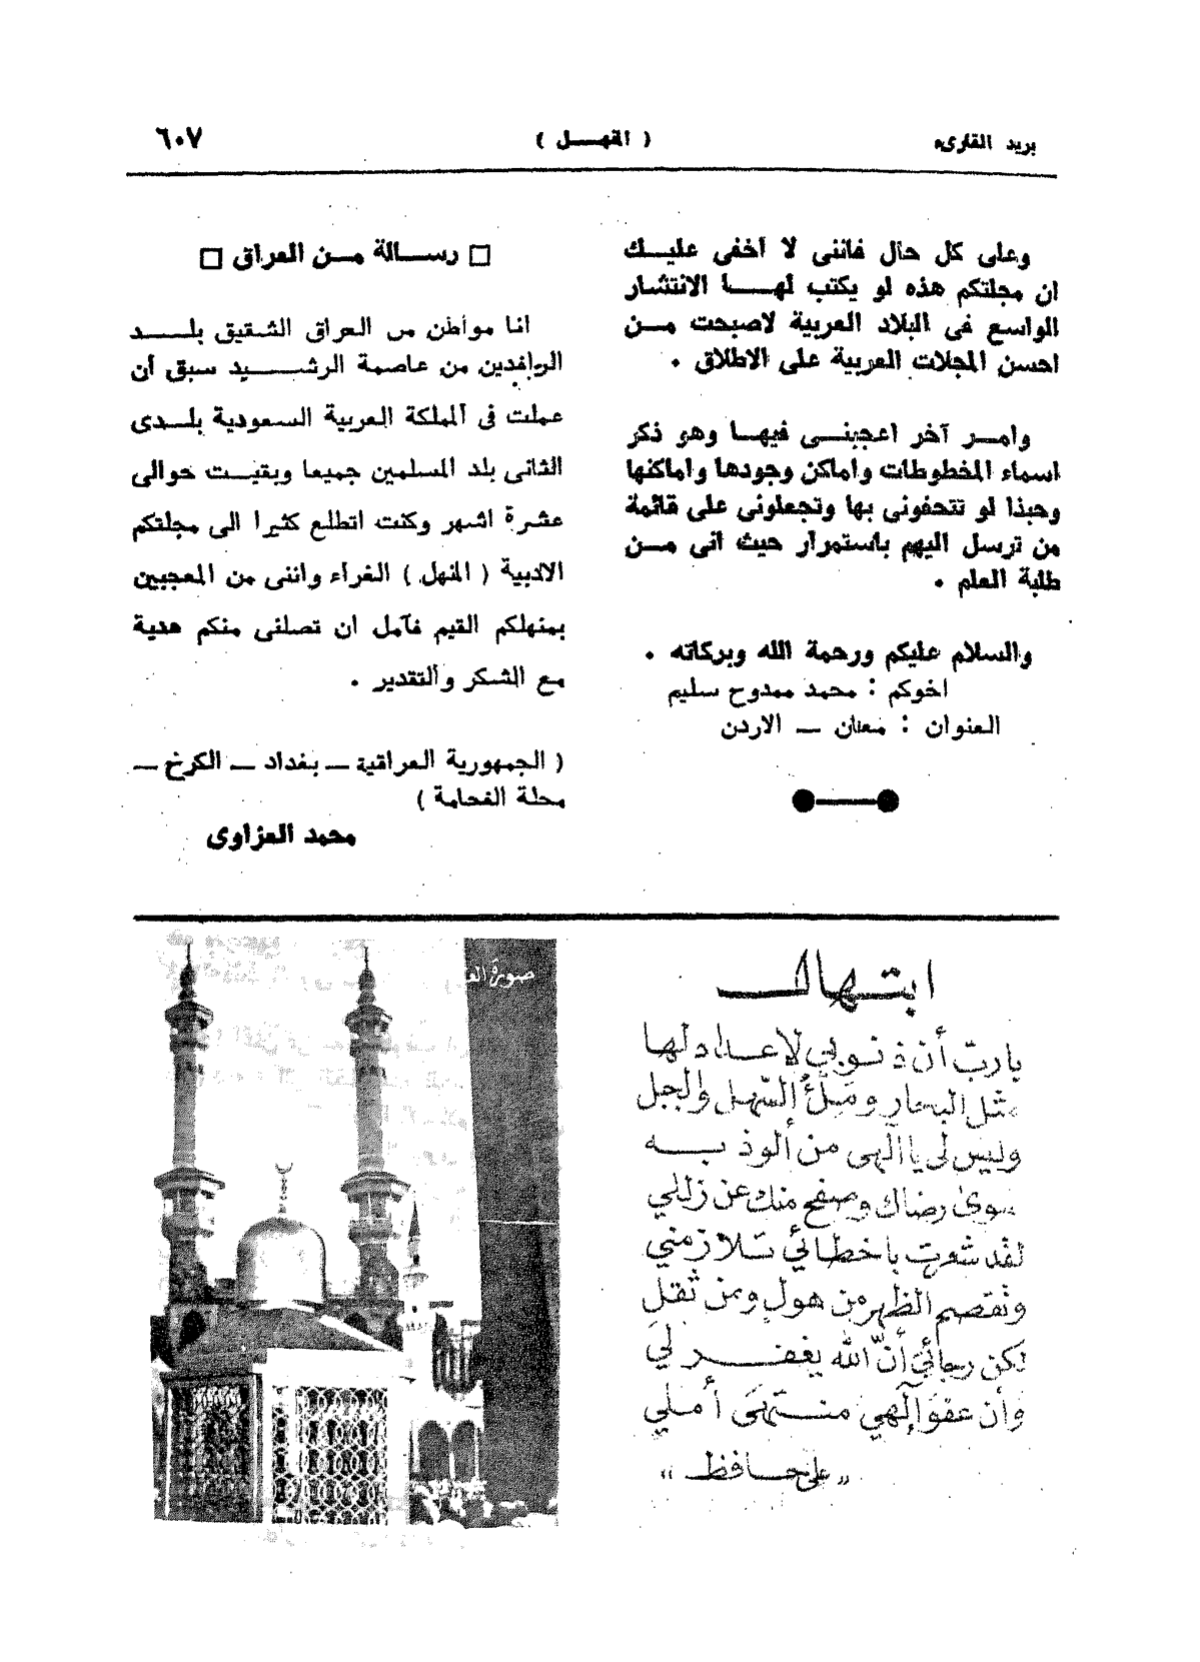 بريد القارىء
( المنهـــل )
٦٠٧
وعلى كل حال فاننى لا أخفى عليـــك
ان مجلتكم هذه لو يكتب لهـــا الانتشار
الواسع فى البلاد العربية لاصبحت مـــن
احسن المجلات العربية على الاطلاق .
وامـــر آخر اعجبنـــى فيهـــا وهو ذكر
اسماء المخطوطات واماكن وجودها واماكنها
وحبذا لو تتحفونى بها وتجعلونى على قائمة
من ترسل اليهم باستمرار حيث انى مـــن
طلبة العلم .
والسلام عليكم ورحمة الله وبركاته .
اخوكم : محمد ممدوح سليم
العنوان : معان — الاردن
□ رســـالة مـــن العراق □
انا مواطن من العراق الشقيق بلـــد
الرافدين من عاصمة الرشـــيد سبق أن
عملت فى المملكة العربية السعودية بلـــدى
الثانى بلد المسلمين جميعا وبقيـــت حوالى
عشرة اشهر وكنت اتطلع كثيرا الى مجلتكم
الادبية ( المنهل ) الغراء واننى من المعجبين
بمنهلكم القيم فآمل ان تصلنى منكم هدية
مع الشكر والتقدير .
( الجمهورية العراقية — بغداد — الكرخ —
محلة الفحامة )
محمد العزاوى
ابتـــهال
يارب أن ذنوبي لا عداد لها
مثل البحار وملأ السهل والجبل
وليس لي يا الهى من ألوذ بـــه
سوى رضاك وصفح منك عن زللي
لقد شعرت بأخطائي تلازمني
وتقصم الظهر من هول ومن ثقل
لكن رجائي أنّ الله يغفـــر لي
وأن عفو إلهي منـــتهى أملي
« علي حـــافظ »
صورة